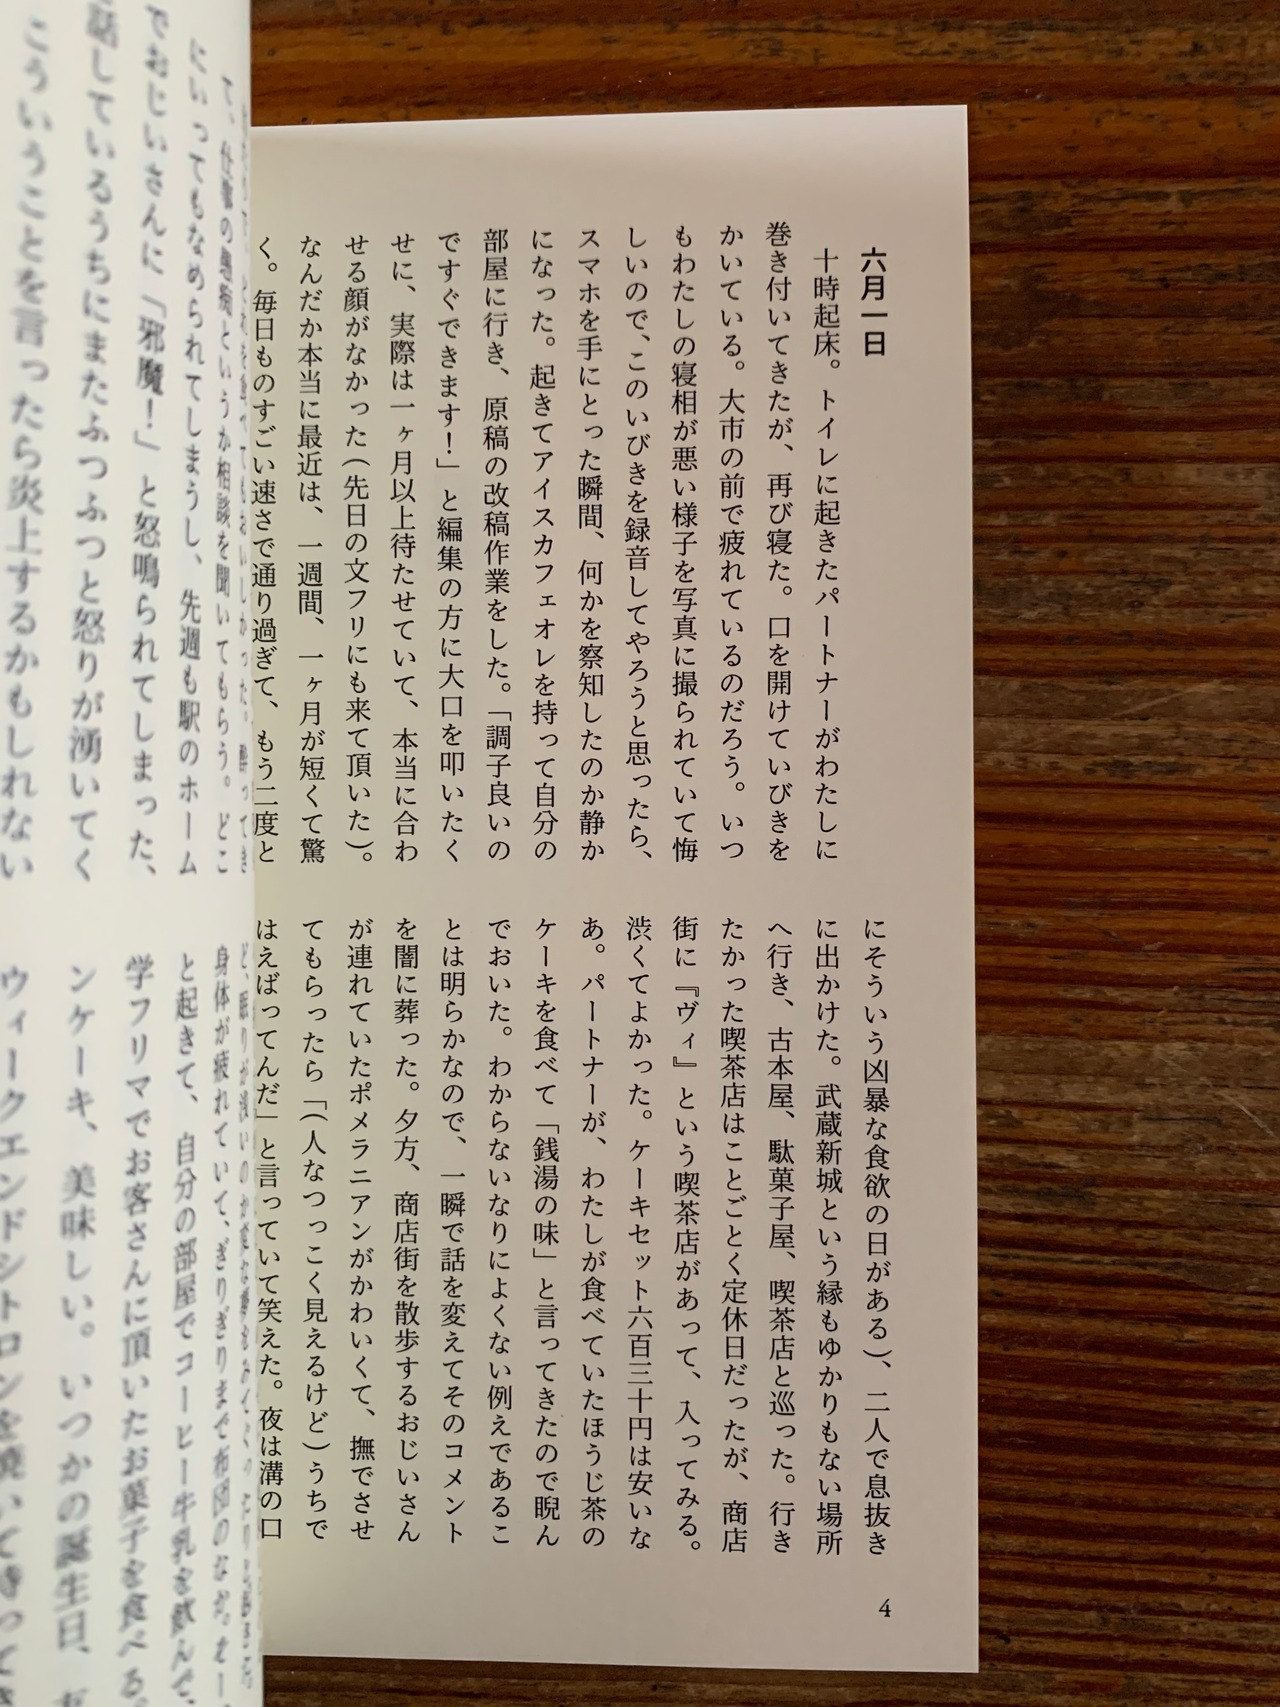 六月一日
十時起床。トイレに起きたパートナーがわたしに
巻き付いてきたが、再び寝た。口を開けていびきを
かいている。大市の前で疲れているのだろう。いつ
もわたしの寝相が悪い様子を写真に撮られていて悔
しいので、このいびきを録音してやろうと思ったら、
スマホを手にとった瞬間、何かを察知したのか静か
になった。起きてアイスカフェオレを持って自分の
部屋に行き、原稿の改稿作業をした。「調子良いの
ですぐできます！」と編集の方に大口を叩いたく
せに、実際は一ヶ月以上待たせていて、本当に合わ
せる顔がなかった（先日の文フリにも来て頂いた）。
なんだか本当に最近は、一週間、一ヶ月が短くて驚
く。毎日ものすごい速さで通り過ぎて、もう二度と
にそういう凶暴な食欲の日がある）、二人で息抜き
に出かけた。武蔵新城という縁もゆかりもない場所
へ行き、古本屋、駄菓子屋、喫茶店と巡った。行き
たかった喫茶店はことごとく定休日だったが、商店
街に『ヴィ』という喫茶店があって、入ってみる。
渋くてよかった。ケーキセット六百三十円は安いな
あ。パートナーが、わたしが食べていたほうじ茶の
ケーキを食べて「銭湯の味」と言ってきたので睨ん
でおいた。わからないなりによくない例えであるこ
とは明らかなので、一瞬で話を変えてそのコメント
を闇に葬った。夕方、商店街を散歩するおじいさん
が連れていたポメラニアンがかわいくて、撫でさせ
てもらったら「（人なつっこく見えるけど）うちで
はえばってんだ」と言っていて笑えた。夜は溝の口
4
て、仕事の愚痴というか相談を聞いてもらう。どこ
にいってもなめられてしまうし、先週も駅のホーム
でおじいさんに「邪魔！」と怒鳴られてしまった、
話しているうちにまたふつふつと怒りが湧いてく
こういうことを言ったら炎上するかもしれない
身体が疲れていて、ぎりぎりまで布団のなか。
と起きて、自分の部屋でコーヒー牛乳を飲んで、
学フリマでお客さんに頂いたお菓子を食べる。
ンケーキ、美味しい。いつかの誕生日、
ウィークエンドシトロンを焼いて待って